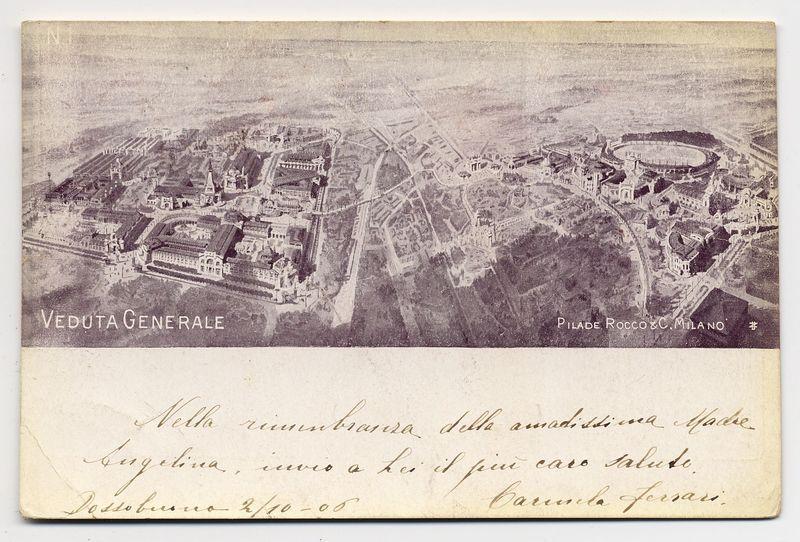 N 1
VEDUTA GENERALE
PILADE ROCCO & C. MILANO
Nella rimembranza della amadissima Madre
Angelina, invio a Lei il più caro saluto.
Dossobuono 2/10-06 Carmela Ferrari.